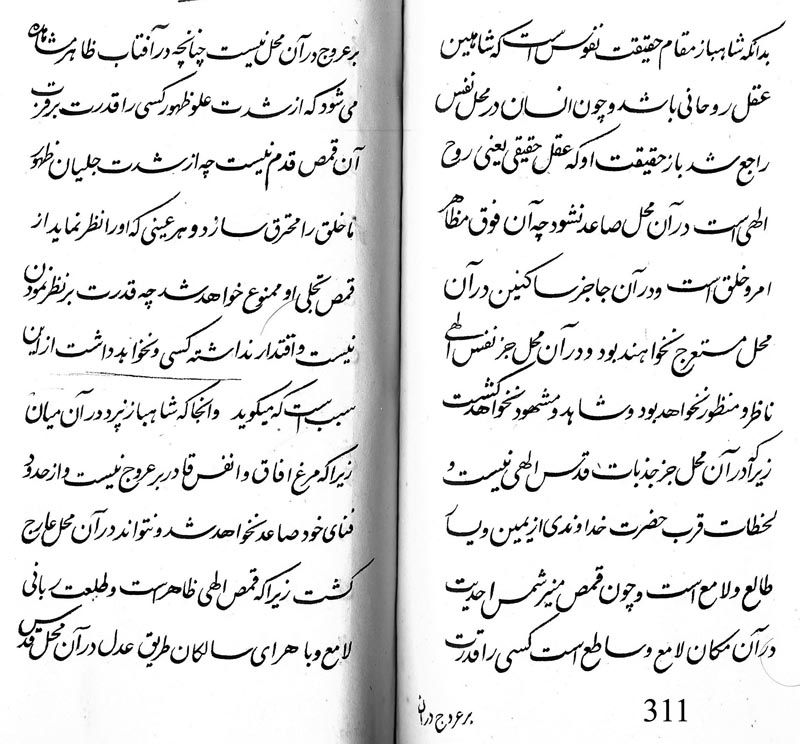 بدانکه شاهباز مقام حقیقت نفوس است که شاهین
عقل روحانی باشد و چون انسان در محل نفس
راجع شد باز حقیقت او که عقل حقیقی یعنی روح
الهی است در آن محل صاعد نشود چه آن فوق مظاهر
امر و خلق است و در آن جا جز ساکنین در آن
محل مستعرج نخواهند بود و در آن محل جز نفس الهی
ناظر و منظور نخواهد بود و شاهد و مشهود نخواهد گشت
زیرا که در آن محل جز جذبات قدس الهی نیست و
لحظات قرب حضرت خداوندی از یمین و یسار
طالع و لامع است و چون قمص منیر شمس احدیت
در آن مکان لامع و ساطع است کسی را قدرت
بر عروج در آن
311
بر عروج در آن محل نیست چنانچه در آفتاب ظاهر مشاهده
می شود که از شدت علو ظهور کسی را قدرت بر قرب
آن قمص قدم نیست چه از شدت جلیان ظهور
ما خلق را محترق سازد و هر عینی که او را نظر نماید از
قمص تجلی او ممنوع خواهد شد چه قدرت بر نظر نمودن
نیست و اقتدار نداشته کسی و نخواهد داشت از این
سبب است که میگوید وانجا که شاهباز نپرد در آن میان
زیرا که مرغ افاق و انفس قادر بر عروج نیست و از حدود
فنای خود صاعد نخواهد شد و نتواند در آن محل عارج
گشت زیرا که قمص الهی ظاهر است و طلعت ربانی
لامع و باهر ای سالکان طریق عدل در آن محل قدس